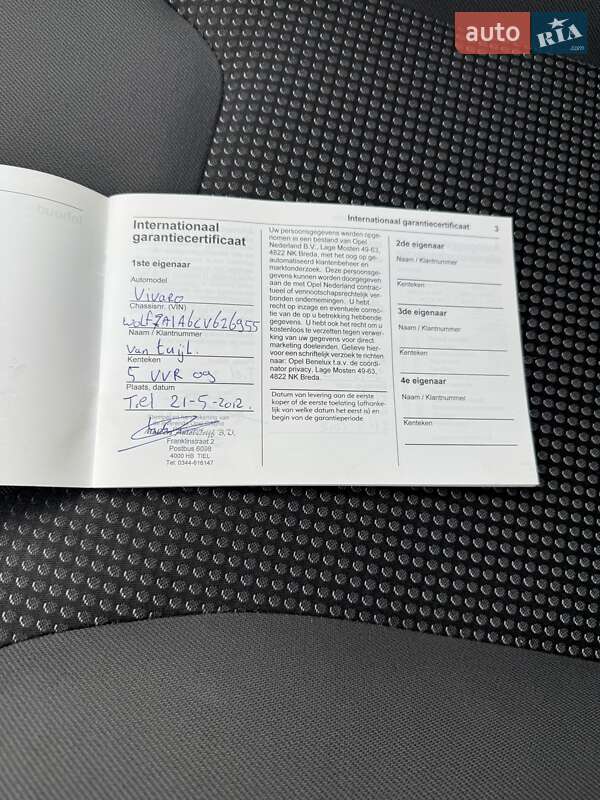 auto RIA
.com
Internationaal garantiecertificaat 3
Internationaal
garantiecertificaat
1ste eigenaar
Automodel
Vivaro
Chassisnr. (VIN)
WOLF7A1A6CV626955
Naam / Klantnummer
van tuijl.
Kenteken
5 VVR 09
Plaats, datum
Tiel 21-5-2012.
Franklinstraat 2
Postbus 6098
4000 HB TIEL
Tel: 0344-616147
Uw persoonsgegevens werden opge-
nomen in een bestand van Opel
Nederland B.V., Lage Mosten 49-63,
4822 NK Breda, met het oog op ge-
automatiseerd klantenbeheer en
marktonderzoek. Deze persoonsge-
gevens kunnen worden doorgegeven
aan de met Opel Nederland contrac-
tueel of vennootschapsrechtelijk ver-
bonden ondernemingen. U hebt
recht op inzage en eventuele correc-
tie van de op u betrekking hebbende
gegevens. U hebt ook het recht om u
kosteloos te verzetten tegen verwer-
king van uw gegevens voor direct
marketing doeleinden. Gelieve hier-
voor een schriftelijk verzoek te richten
naar: Opel Benelux t.a.v. de coordi-
nator privacy, Lage Mosten 49-63,
4822 NK Breda.
Datum van levering aan de eerste
koper of de eerste toelating (afhanke-
lijk van welke datum het eerst is) en
begin van de garantieperiode
2de eigenaar
Naam / Klantnummer
Kenteken
3de eigenaar
Naam / Klantnummer
Kenteken
4e eigenaar
Naam / Klantnummer
Kenteken